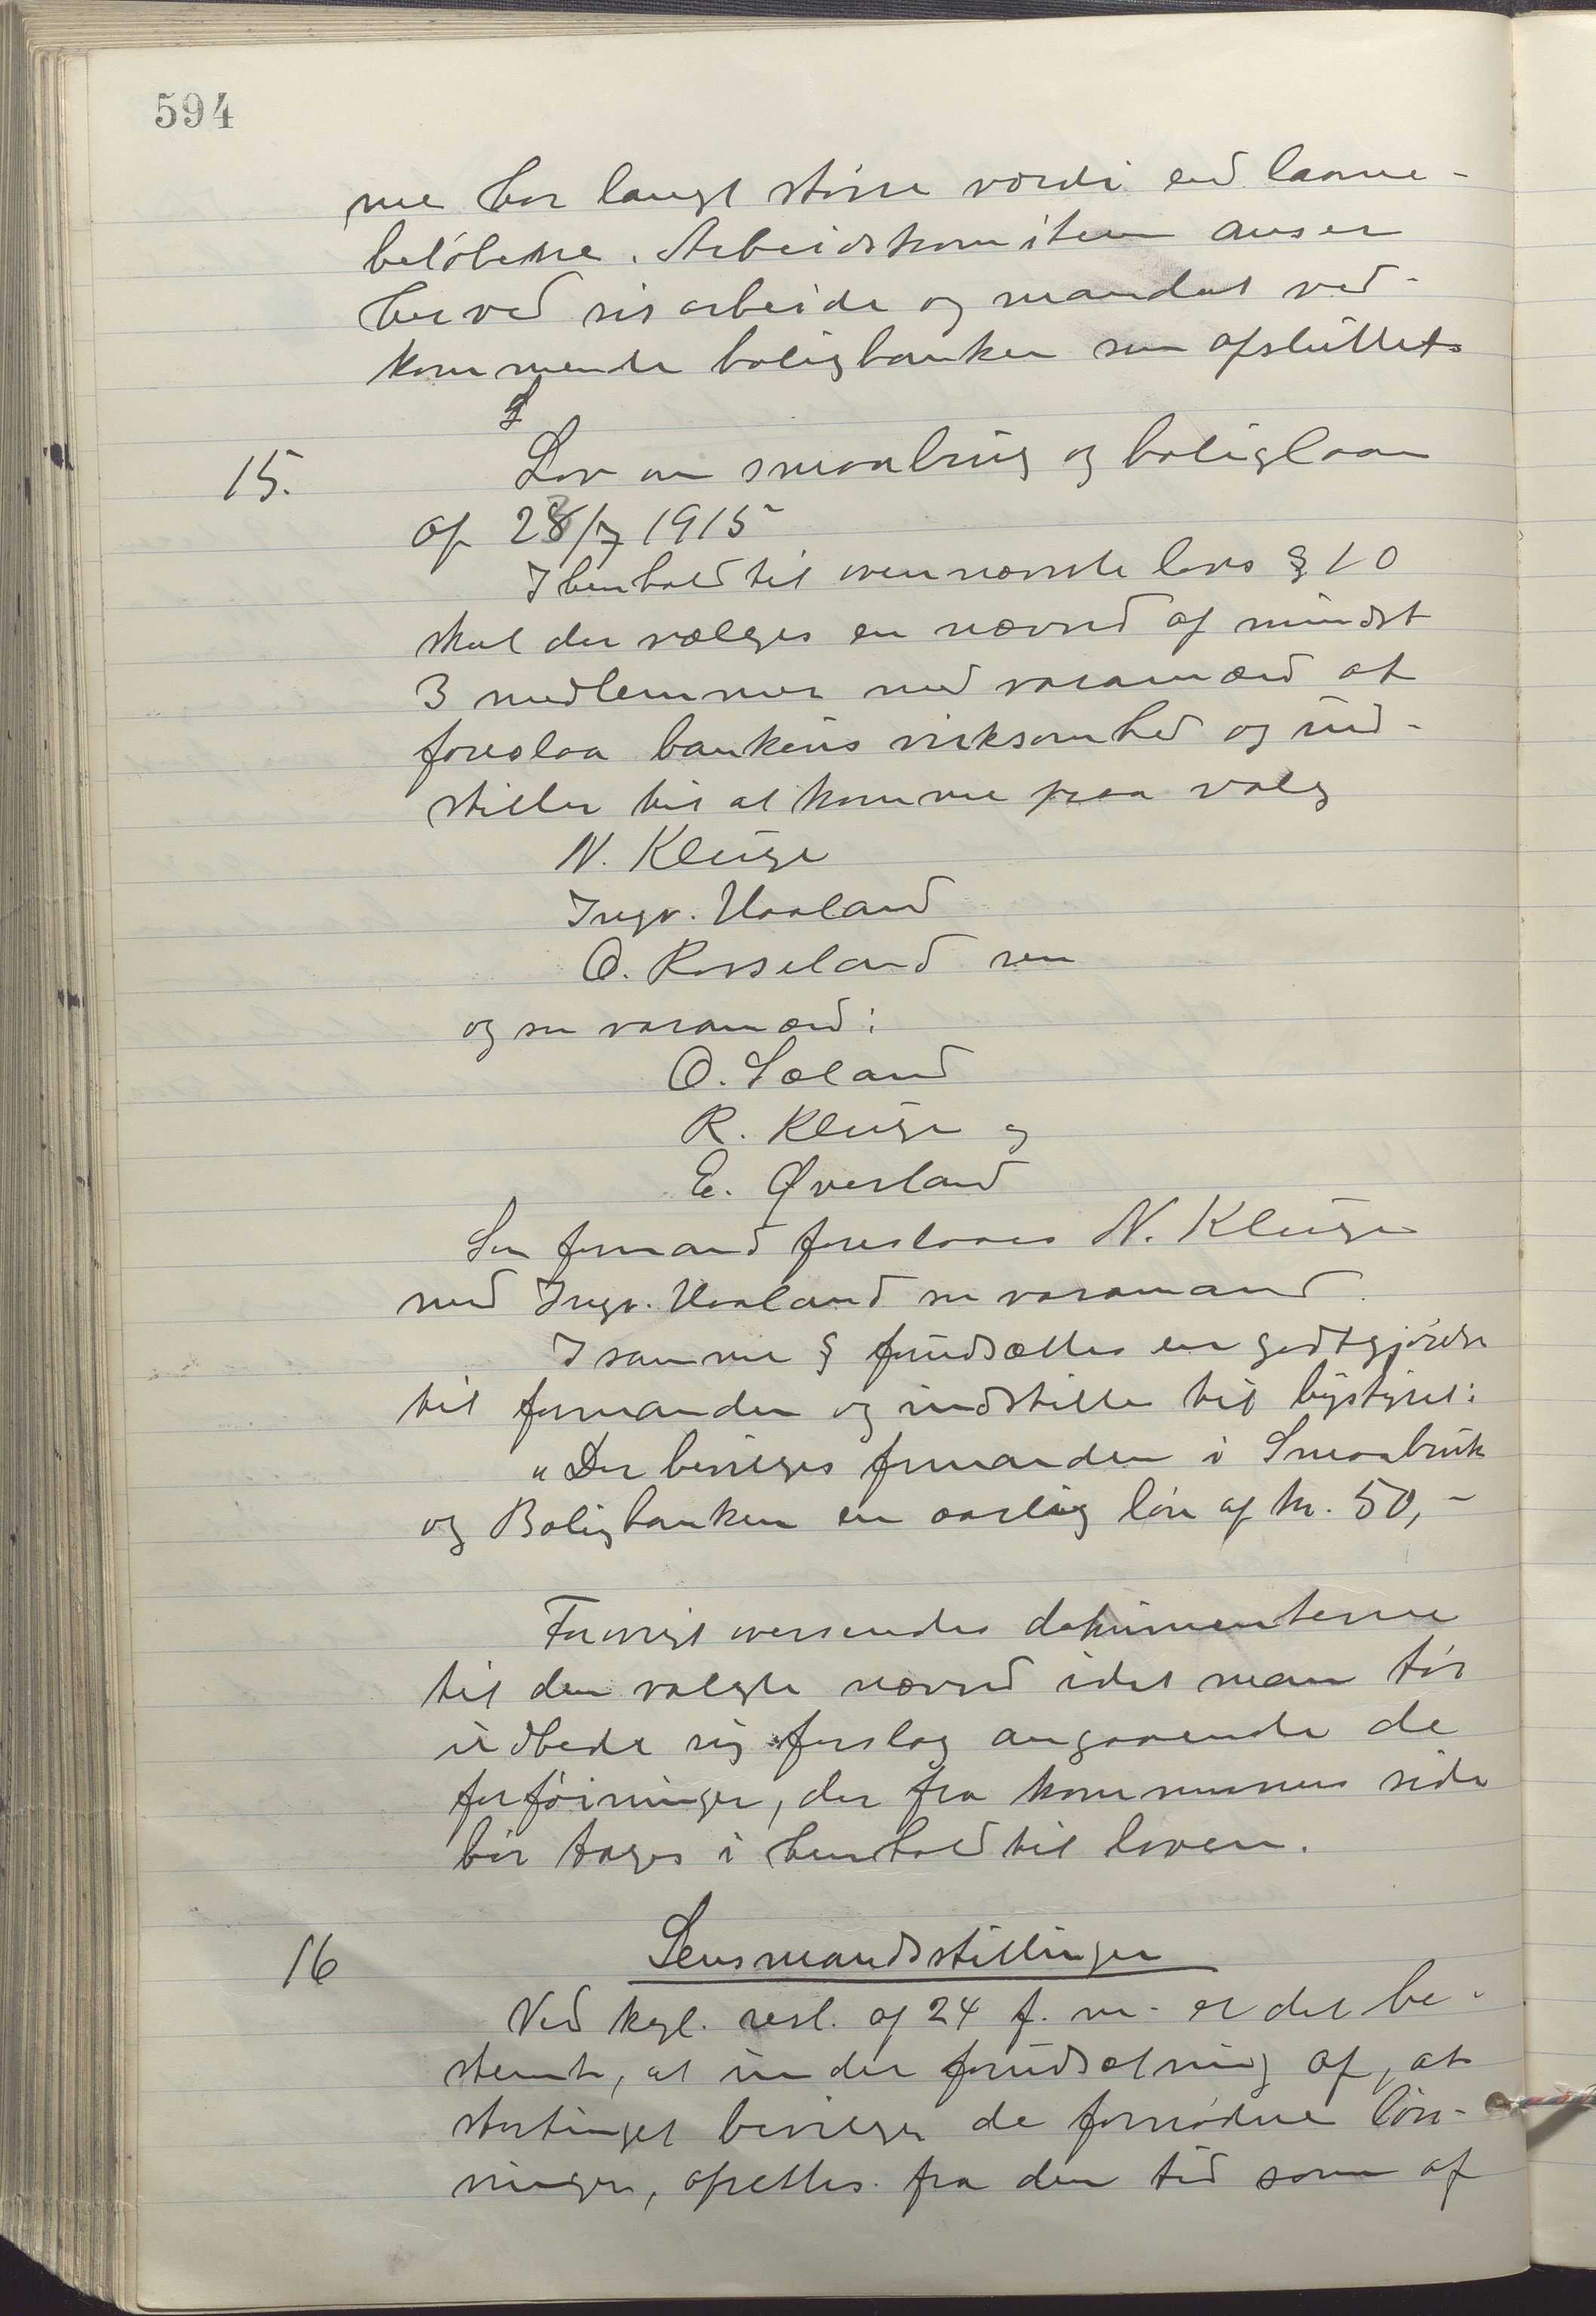 594
ne har langt större værdi end laane-
beløbene. Arbeidskomiteen anser
herved sit arbeide og mandat ved-
kommende boligbanken som afsluttet
15. Lov om smaabrug og boliglaan
af 28/7 1915
I henhold til ovennævnte lovs § 10
skal der vælges en nævnd af mindst
3 medlemmer med varamænd at
foreslaa bankens virksomhed og ind-
stiller til at komme paa valg
N. Kluge
Ingv. Haaland
O. Rosseland sen
og som varamænd:
O. Sæland
R. Kluge og
E. Øverland
Som formand foreslaaes N. Kluge
med Ingv. Haaland som varamand.
I samme § forudsættes en godtgjörelse
til formanden og indstilles til bystyret:
"Der bevilges formanden i Smaabruk
og Boligbanken en aarlig lön af kr. 50,-
Forövrigt oversendes dokumenterne
til den valgte nævnd idet man tör
udbede sig forslag angaaende de
forföininger, der fra kommunens side
bör tages i henhold til loven.
16 Lensmandsstillinger
Ved kgl. resl. af 24 f. m. er det be-
stemt, at under forudsætning af, at
stortinget bevilger de fornødne løn-
ninger, oprettes fra den tid som af